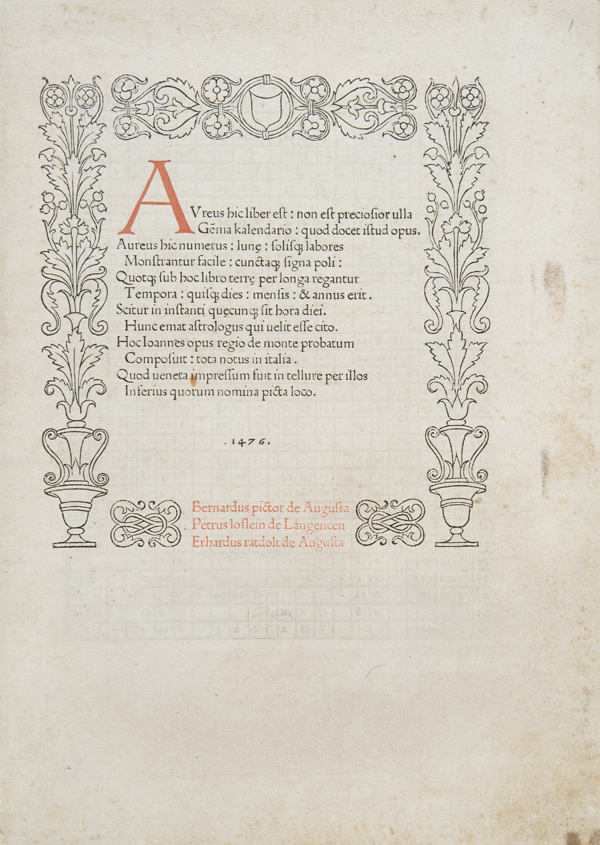 AVreus hic liber est : non est preciosior ulla
Gēma kalendario : quod docet istud opus.
Aureus hic numerus : lunę : solisqꝫ labores
Monstrantur facile : cunctaqꝫ signa poli :
Quotqꝫ sub hoc libro terrę per longa regantur
Tempora : quisqꝫ dies : mensis : & annus erit .
Scitur in instanti quęcunqꝫ sit hora diei.
Hunc emat astrologus qui uelit esse cito.
Hoc Ioannes opus regio de monte probatum
Composuit : tota notus in italia .
Quod ueneta impressum fuit in tellure per illos
Inferius quorum nomina picta loco.
.1476.
Bernardus pictor de Augusta
Petrus loslein de Langencen
Erhardus ratdolt de Augusta